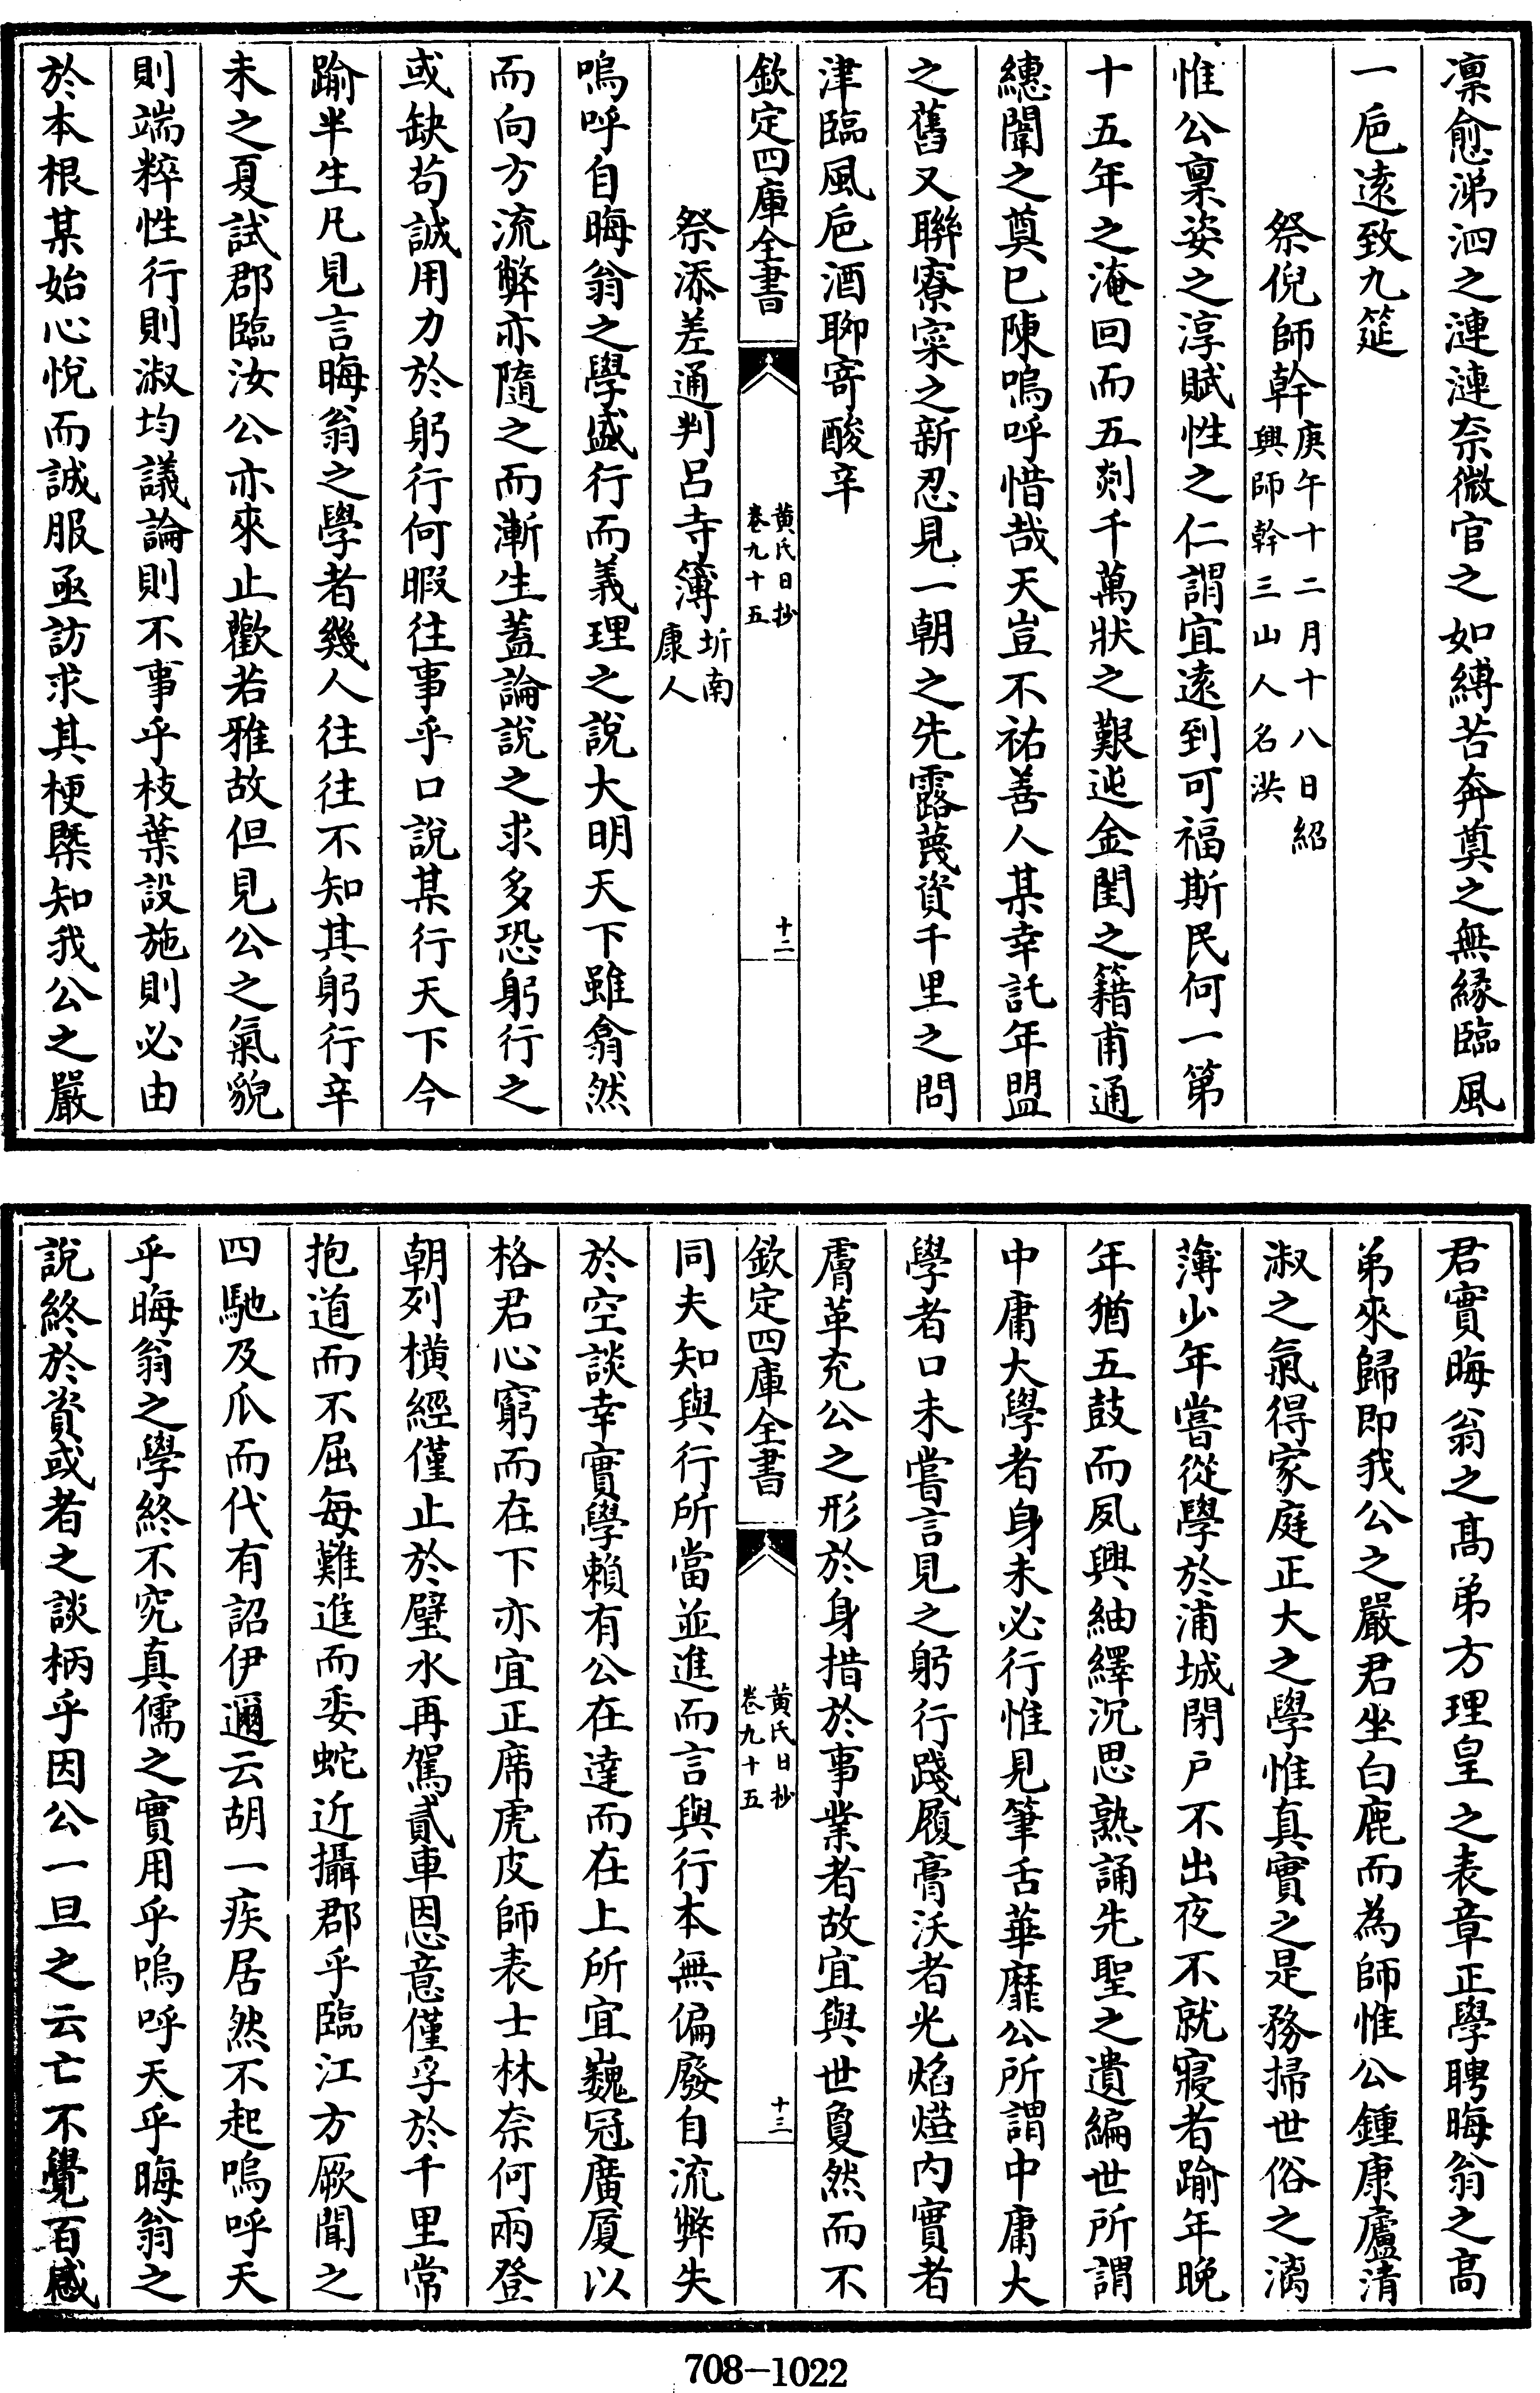 凛愈涕泗之漣漣奈微官之如縛苦奔奠之無縁臨風
一巵逺致九筵
祭倪師幹庚午十二月十八日紹興師幹三山人名洪
惟公稟姿之淳賦性之仁謂宜逺到可福斯民何一第
十五年之淹回而五剡千萬狀之艱迍金閨之籍甫通
繐闈之奠已陳嗚呼惜哉天豈不祐善人某幸託年盟
之舊又聯寮寀之新忍見一朝之先露蔑資千里之問
津臨風巵酒聊寄酸辛
欽定四庫全書
黄氏日抄
卷九十五
十二
祭添差通判吕寺簿圻南康人
嗚呼自晦翁之學盛行而義理之說大明天下雖翕然
而向方流弊亦隨之而漸生蓋論說之求多恐躬行之
或缺茍誠用力於躬行何暇往事乎口說某行天下今
踰半生凡見言晦翁之學者幾人往往不知其躬行辛
未之夏試郡臨汝公亦來止歡若雅故但見公之氣貌
則端粹性行則淑均議論則不事乎枝葉設施則必由
於本根某始心悅而誠服亟訪求其梗槩知我公之嚴
君實晦翁之髙弟方理皇之表章正學聘晦翁之髙
弟來歸即我公之嚴君坐白鹿而為師惟公鍾康廬清
淑之氣得家庭正大之學惟真實之是務掃世俗之漓
薄少年嘗從學於浦城閉户不出夜不就寢者踰年晚
年猶五鼓而夙興紬繹沉思熟誦先聖之遺編世所謂
中庸大學者身未必行惟見筆舌華靡公所謂中庸大
學者口未嘗言見之躬行踐履膏沃者光焰燁内實者
膚革充公之形於身措於事業者故宜與世敻然而不
欽定四庫全書
黄氏日抄
卷九十五
十三
同夫知與行所當並進而言與行本無偏廢自流弊失
於空談幸實學賴有公在達而在上所宜巍冠廣厦以
格君心窮而在下亦宜正席虎皮師表士林奈何兩登
朝列横經僅止於璧水再駕貳車恩意僅孚於千里常
抱道而不屈每難進而委蛇近攝郡乎臨江方厥聞之
四馳及瓜而代有詔伊邇云胡一疾居然不起嗚呼天
乎晦翁之學終不究真儒之實用乎嗚呼天乎晦翁之
說終於資或者之談柄乎因公一旦之云亡不覺百感
708-1022